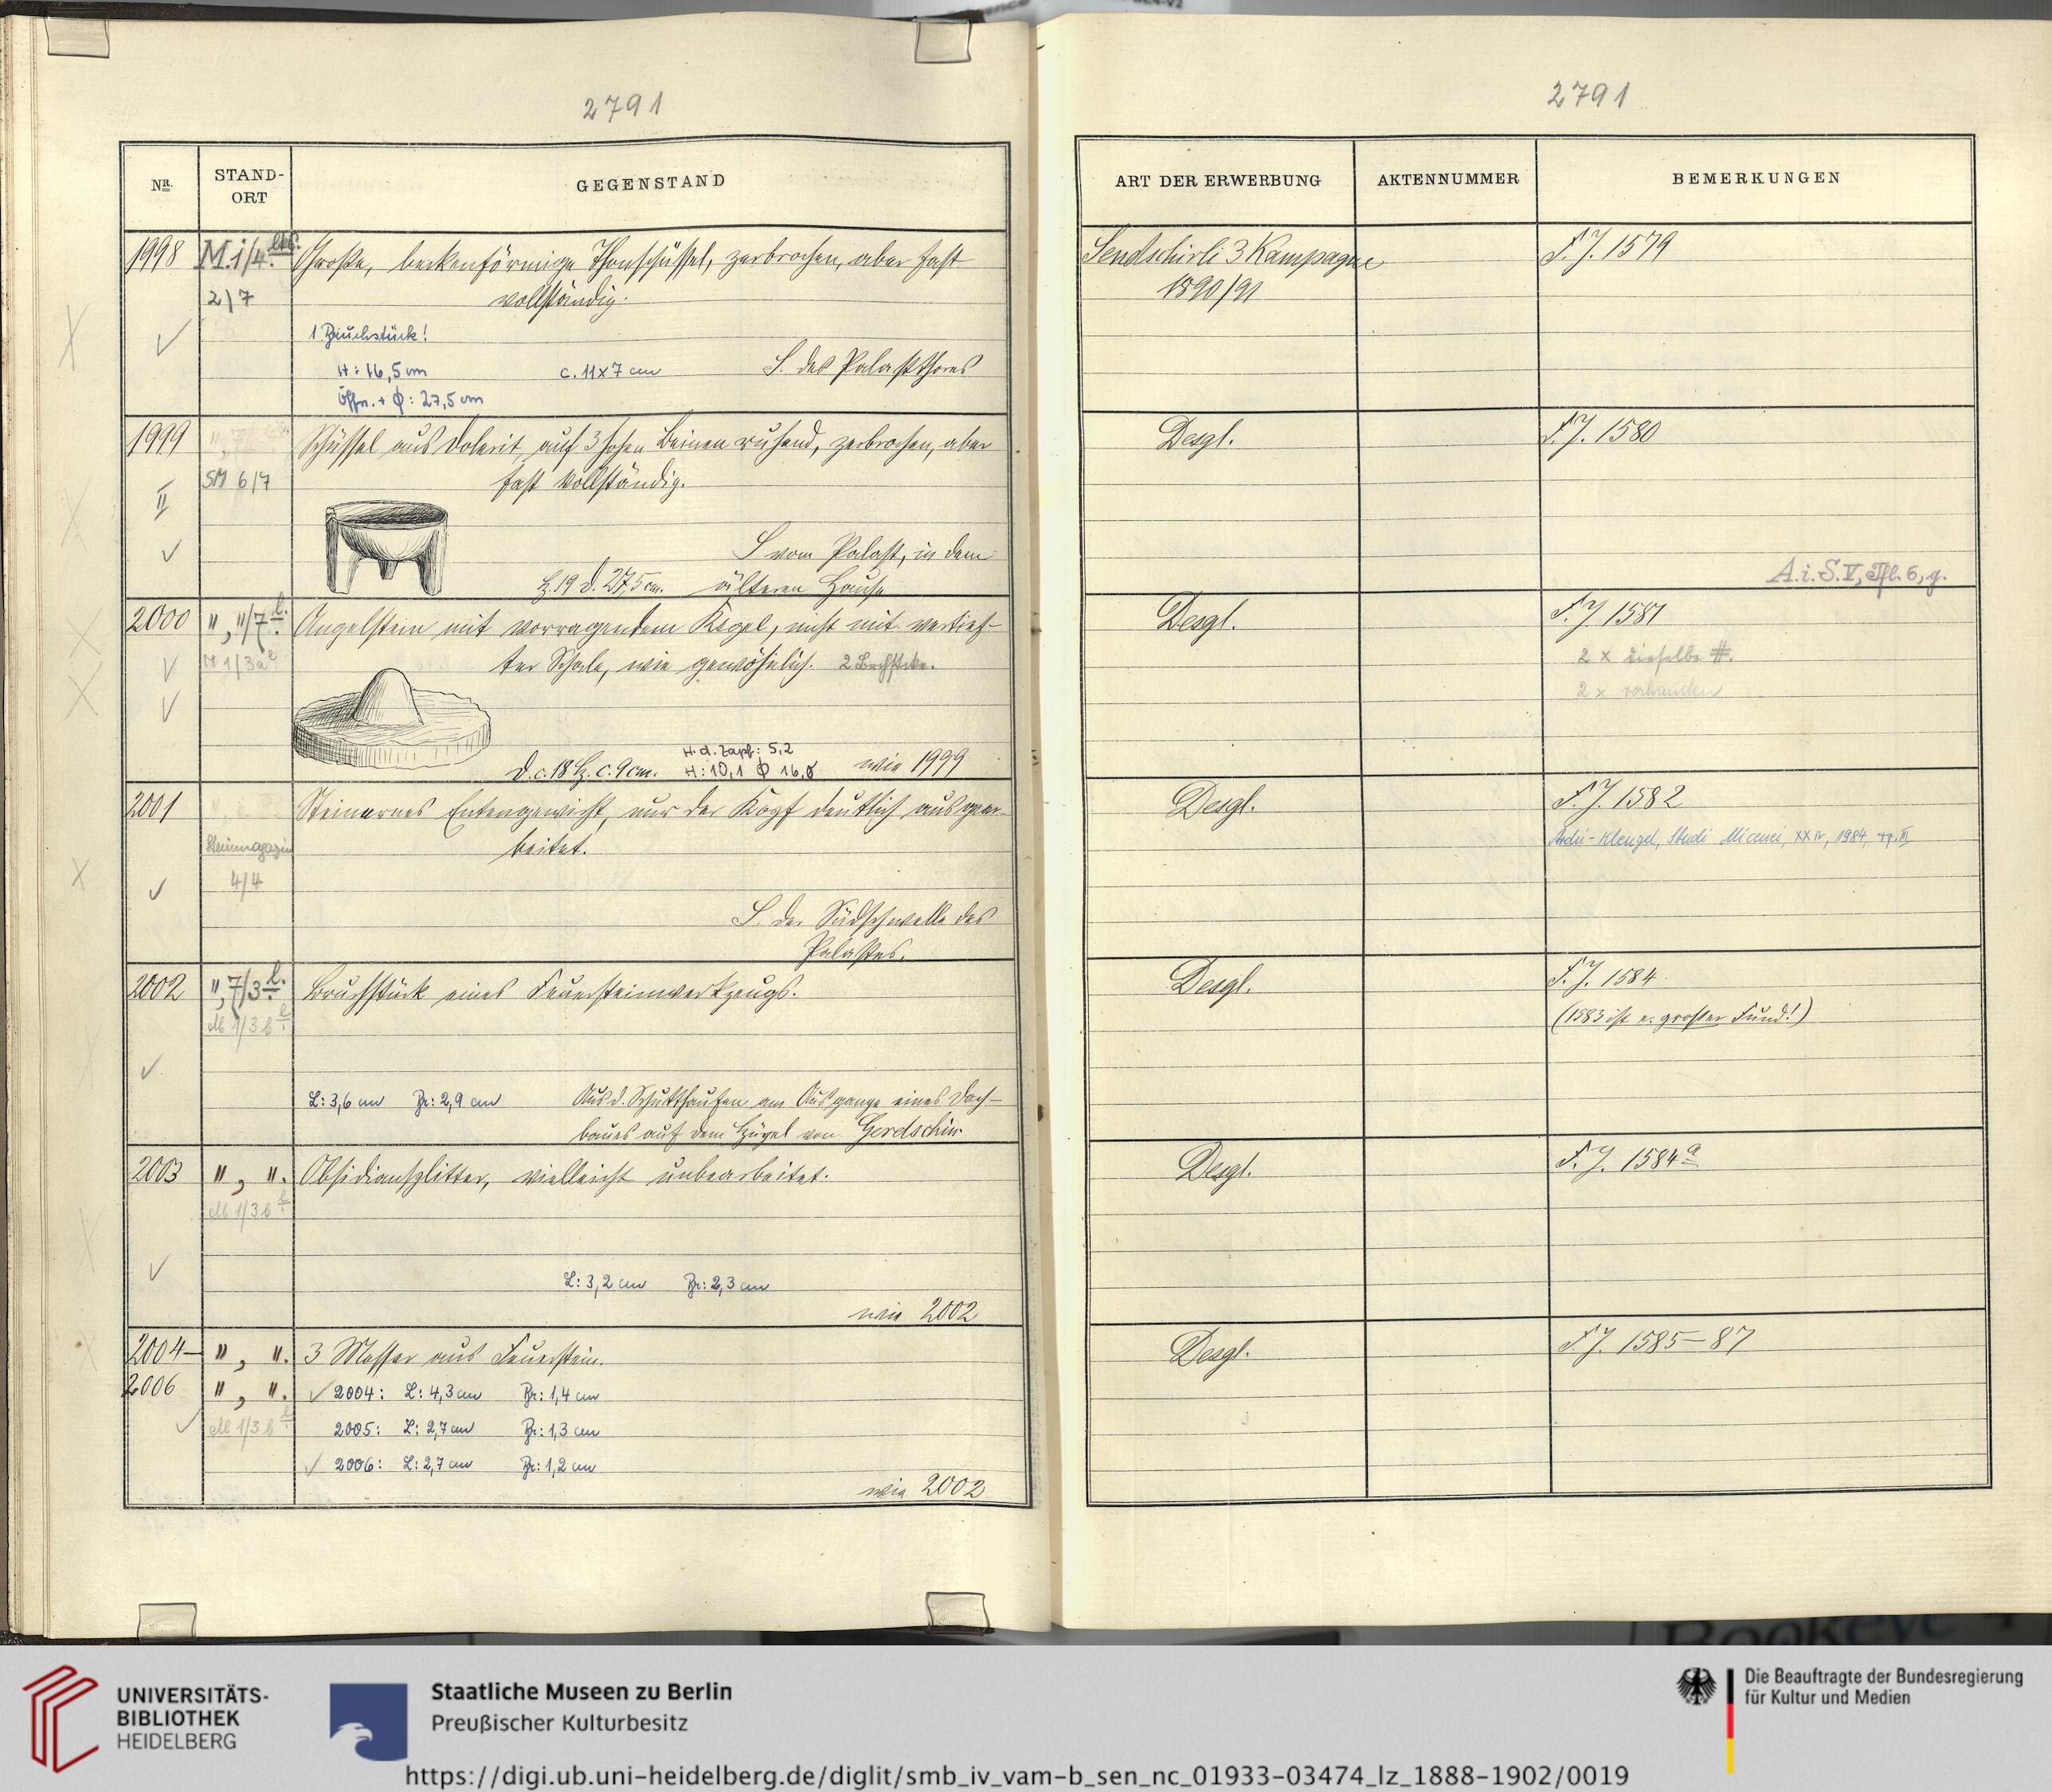 2791
NR.
STAND-
ORT
GEGENSTAND
1998
M.i/4.
Große, beckenförmige Thonschüssel, zerbrochen, aber fast
2/7
vollständig.
1 Bruchstück!
H: 16,5 cm
c. 11x7 cm
S. des Palastthores
Öffn. + ϕ: 27,5 cm
1999
Schüssel aus Dolerit, auf 3 hohen Beinen ruhend, zerbrochen, aber
SM 6/7
fast vollständig.
II
S vom Palast, in dem
H. 19 d. 27,5 cm.
älteren Hause
2000
", "/7 l.
Angelstein mit vorragendem Kegel, nicht mit vertief-
M 1/3a
ter Schale, wie gewöhnlich.
2 Brchstcke.
H. d. Zapf: 5,2
D. c. 18 H. c. 9 cm.
H: 10,1 ϕ 16,8
wie 1999
2001
Steinernes Entengewicht, nur der Kopf deutlich ausgear-
Steinmagazin
beitet.
4/4
S. der Südschwelle des
Palastes.
2002
", 7/3 l.
Bruchstück eines Feuersteinwerkzeugs.
M 1/3 b
L: 3,6 cm Br: 2,9 cm
Aus d. Schutthaufen am Ausgange eines Dach-
baues auf dem Hügel von Gerdschin
2003
", ".
Obsidiansplitter, vielleicht unbearbeitet.
M 1/3 b
L: 3,2 cm Br: 2,3 cm
wie 2002
2004–
", ".
3 Messer aus Feuerstein.
2006
", ".
✓ 2004: L: 4,3 cm Br: 1,4 cm
M 1/3 b
2005: L: 2,7 cm Br: 1,3 cm
✓ 2006: L: 2,7 cm Br: 1,2 cm
wie 2002
2791
ART DER ERWERBUNG
AKTENNUMMER
BEMERKUNGEN
Sendschirli 3 Kampagne
F. J. 1579
1890/91
Desgl.
F. J. 1580
A.i.S. V, Tfl. 6, g.
Desgl.
F. J. 1581
2 x dieselbe #.
2 x vorhanden
Desgl.
F. J. 1582
Ardu-Klengel, Studi Micenei, XXIV, 1984,
Desgl.
F. J. 1584
(1583 ist e. großer Fund!)
Desgl.
F. J. 1584 a
Desgl.
F. J. 1585–87
Bookeye
UNIVERSITÄTS-
BIBLIOTHEK
HEIDELBERG
Staatliche Museen zu Berlin
Preußischer Kulturbesitz
Die Beauftragte der Bundesregierung
für Kultur und Medien
https://digi.ub.uni-heidelberg.de/diglit/smb_iv_vam-b_sen_nc_01933-03474_lz_1888-1902/0019